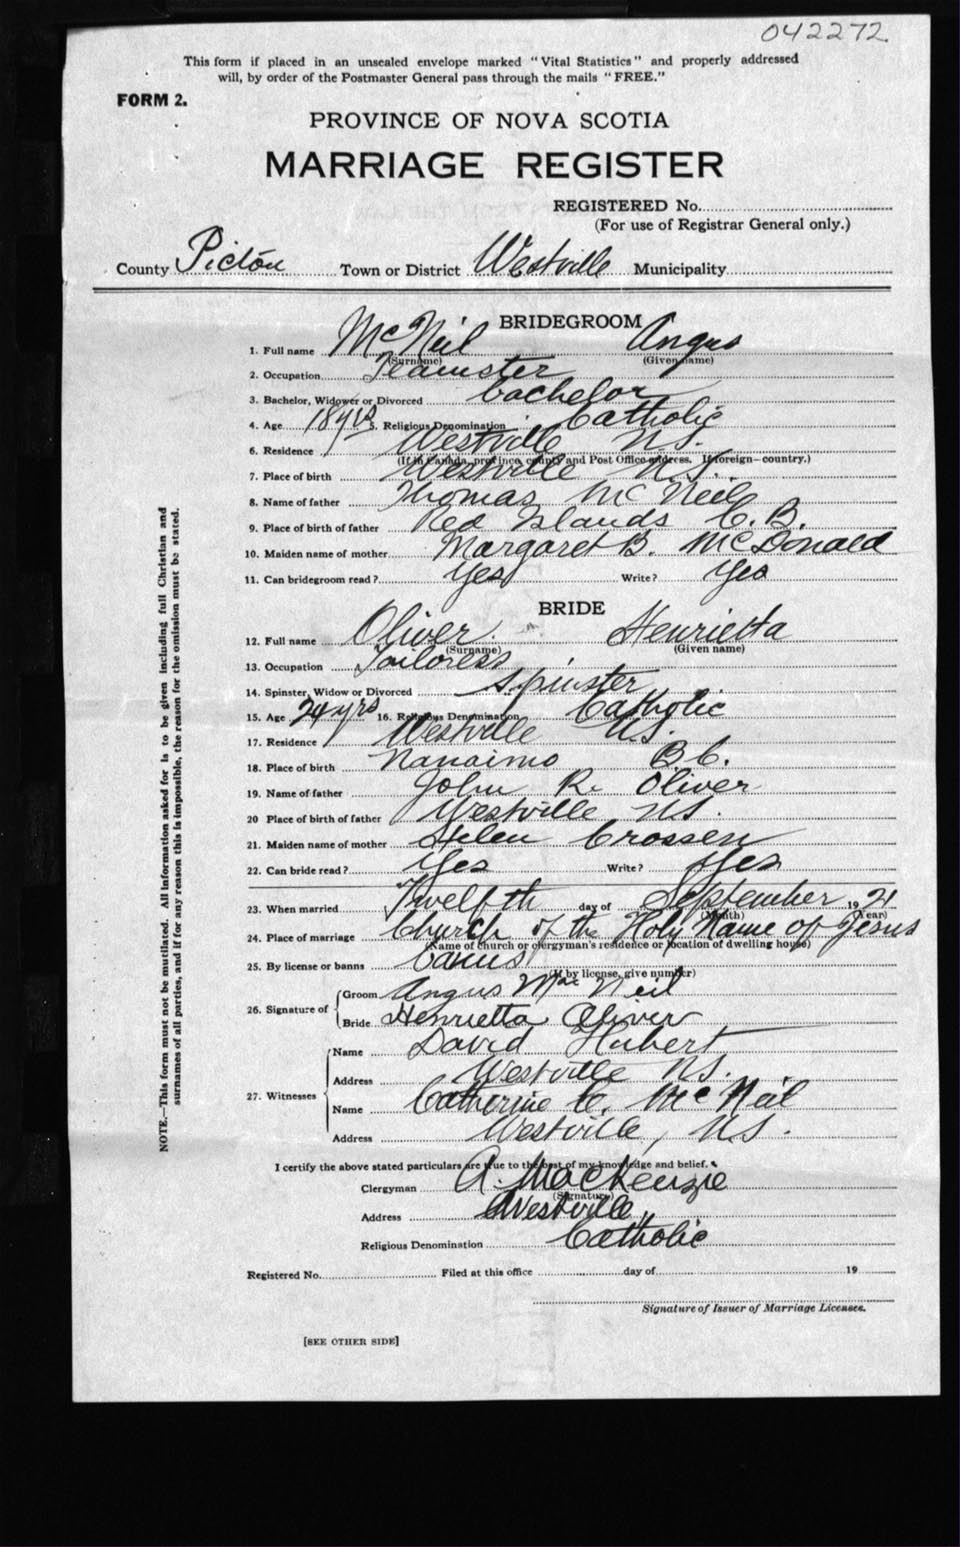 042272
This form if placed in an unsealed envelope marked "Vital Statistics" and properly addressed
will, by order of the Postmaster General pass through the mails "FREE."
FORM 2.
PROVINCE OF NOVA SCOTIA
MARRIAGE REGISTER
REGISTERED No.
(For use of Registrar General only.)
County Pictou Town or District Westville Municipality
BRIDEGROOM
1. Full name McNeil Angus
(Surname) (Given name)
2. Occupation Teamster
3. Bachelor, Widower or Divorced bachelor
4. Age 18 yrs 5. Religious Denomination Catholic
6. Residence Westville N.S.
(If in Canada, province, county and Post Office address. If foreign—country.)
7. Place of birth Westville N.S.
8. Name of father Thomas McNeil
9. Place of birth of father Red Islands C.B.
10. Maiden name of mother Margaret B. McDonald
11. Can bridegroom read? Yes Write? Yes
BRIDE
12. Full name Oliver Henrietta
(Surname) (Given name)
13. Occupation Tailoress
14. Spinster, Widow or Divorced Spinster
15. Age 24 yrs 16. Religious Denomination Catholic
17. Residence Westville N.S.
18. Place of birth Nanaimo B.C.
19. Name of father John R. Oliver
20 Place of birth of father Westville N.S.
21. Maiden name of mother Helen Crossen
22. Can bride read? Yes Write? Yes
23. When married Twelfth day of September 1921
(Month) (Year)
24. Place of marriage Church of the Holy Name of Jesus
(Name of church or clergyman's residence or location of dwelling house)
25. By license or banns banns
(If by license, give number)
26. Signature of Groom Angus McNeil
Bride Henrietta Oliver
27. Witnesses Name David Hubert
Address Westville N.S.
Name Catherine C. McNeil
Address Westville, N.S.
I certify the above stated particulars are true to the best of my knowledge and belief.
Clergyman A. MacKenzie
(Signature)
Address Westville
Religious Denomination Catholic
Registered No. Filed at this office day of 19
Signature of Issuer of Marriage Licenses.
[SEE OTHER SIDE]
NOTE.—This form must not be mutilated. All information asked for is to be given including full Christian and
surnames of all parties, and if for any reason this is impossible, the reason for the omission must be stated.